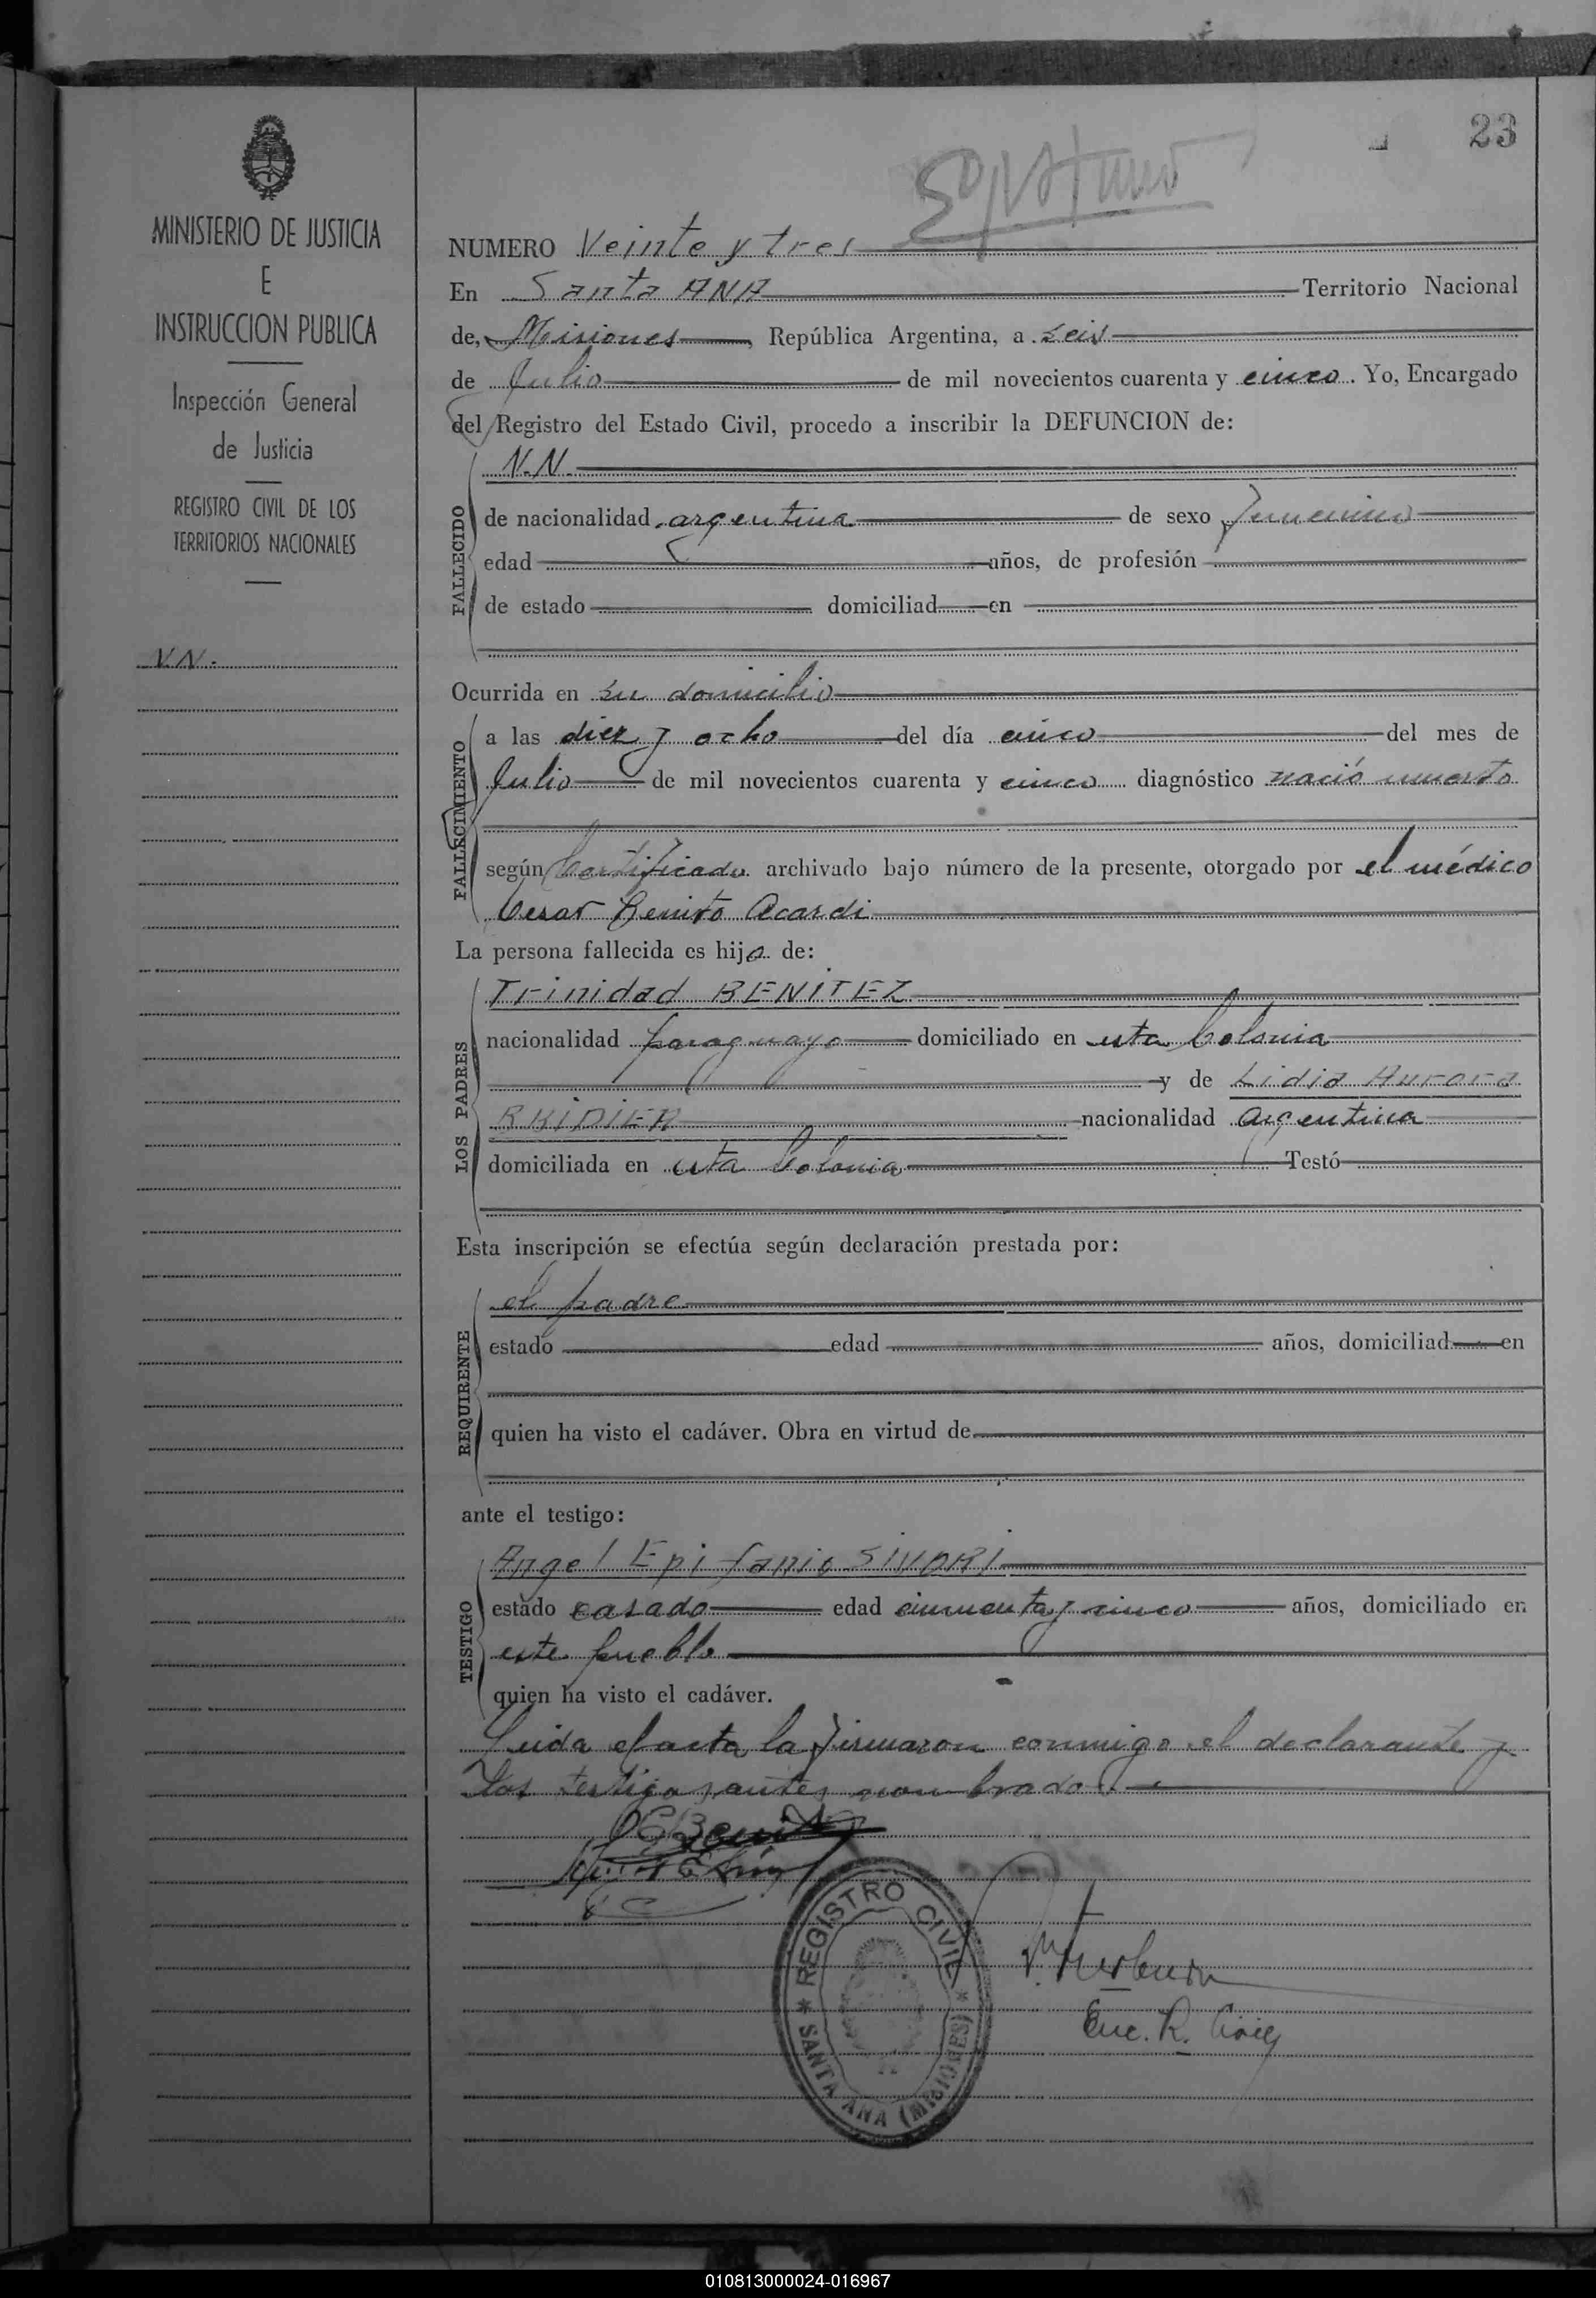 23
MINISTERIO DE JUSTICIA
E
INSTRUCCION PUBLICA
Inspección General
de Justicia
REGISTRO CIVIL DE LOS
TERRITORIOS NACIONALES
N.N.
NUMERO Veinte y tres
En Santa ANA Territorio Nacional
de, Misiones, República Argentina, a seis
de Julio de mil novecientos cuarenta y cinco. Yo, Encargado
del Registro del Estado Civil, procedo a inscribir la DEFUNCION de:
FALLECIDO
N.N.
de nacionalidad argentina de sexo femenino
edad años, de profesión
de estado domiciliad en
Ocurrida en su domicilio
FALLECIMIENTO
a las diez y ocho del día cinco del mes de
Julio de mil novecientos cuarenta y cinco diagnóstico nació muerto
según Certificado archivado bajo número de la presente, otorgado por el médico
Cesar Benito Acardi
La persona fallecida es hija de:
LOS PADRES
Trinidad BENITEZ
nacionalidad paraguayo domiciliado en esta Colonia
y de Lidia Aurora
nacionalidad argentina
domiciliada en esta Colonia Testó
Esta inscripción se efectúa según declaración prestada por:
REQUIRENTE
el padre
estado edad años, domiciliad en
quien ha visto el cadáver. Obra en virtud de
ante el testigo:
TESTIGO
Angel Epifanio
estado casado edad cincuenta y cinco años, domiciliado en
este pueblo
quien ha visto el cadáver.
Leida el acta la firmaron conmigo el declarante y
los testigos antes nombrado.
REGISTRO CIVIL
* SANTA ANA (MISIONES) *
Enc. R. Civil
010813000024-016967